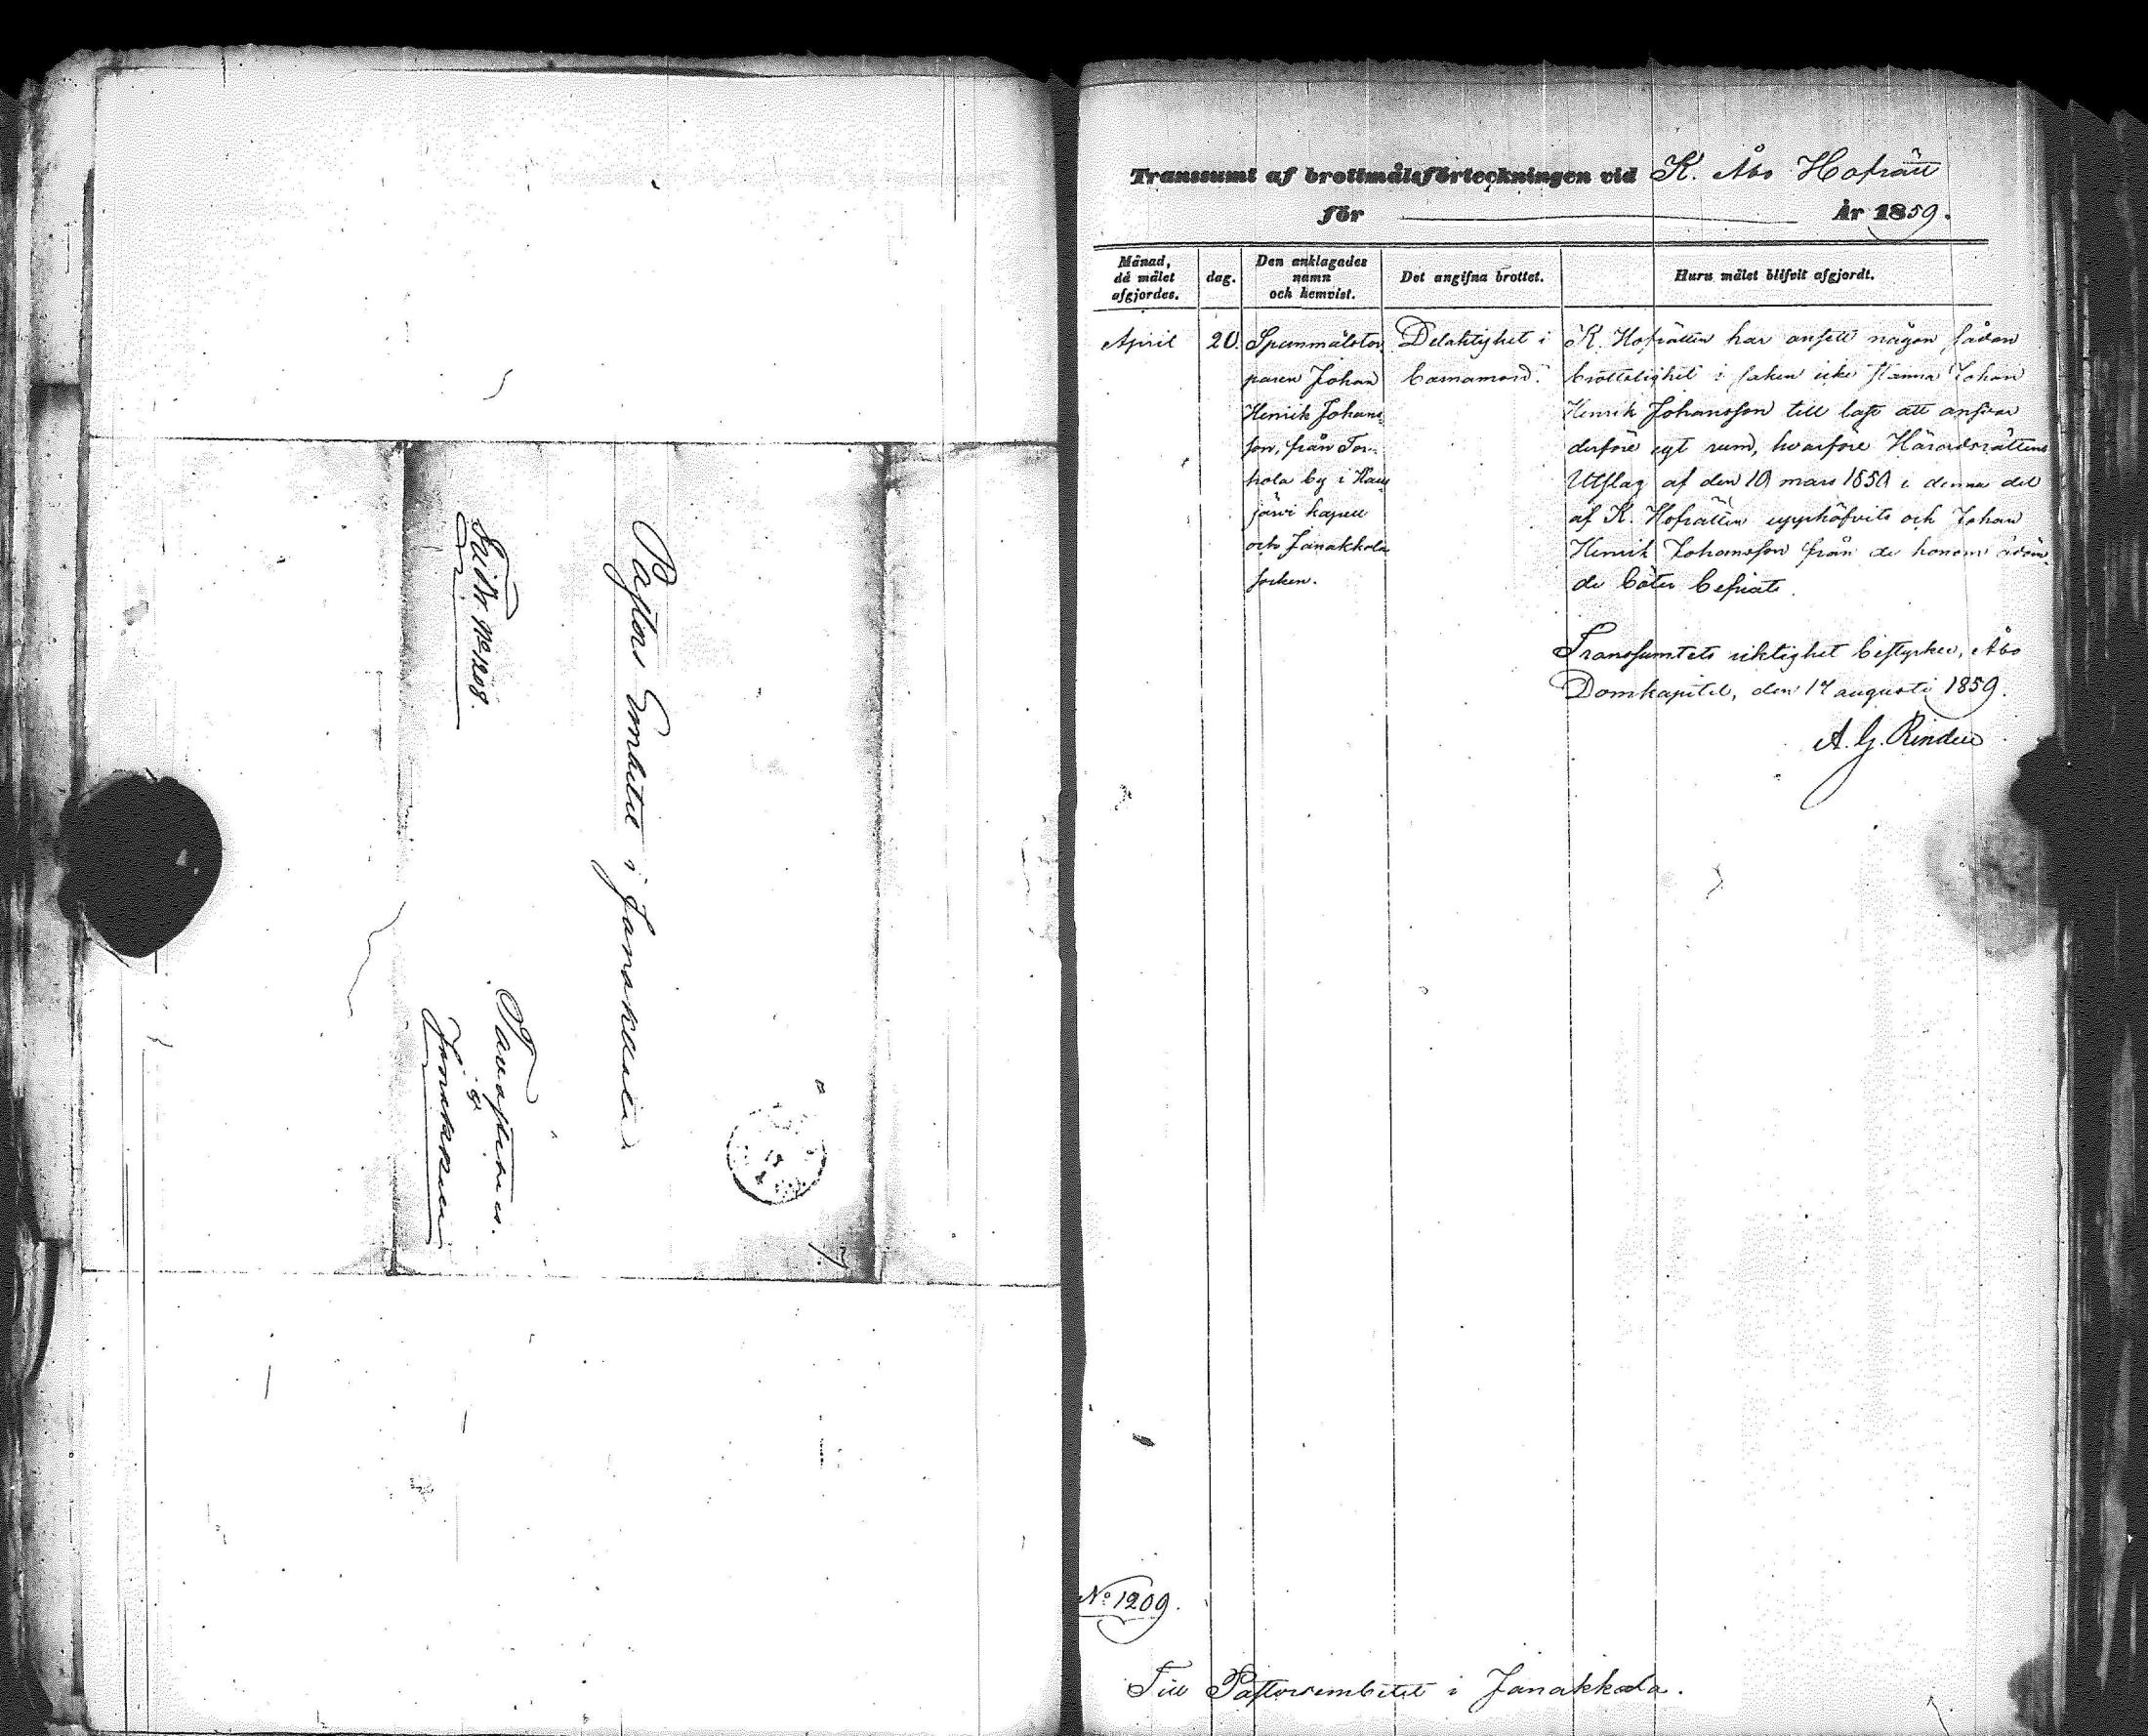 Pastors Embetet i Janakkala
Tavastehus
&
Janakkala
No 1208.
Transsumt af brottmålsförteckningen vid K. Åbo Hofrätt
för År 1859.
Månad, då målet afgjordes.
dag.
Den anklagades namn och hemvist.
Det angifna brottet.
Huru målet blifvit afgjordt.
April
20.
Spanmålstor
paren Johan
Henrik Johans-
son, från Tor-
hola by i Haus
järvi kapell
och Janakkala
socken.
Delaktighet i
barnamord.
K. Hofrätten har ansett någon sådan
brottslighet i saken icke kunna Johan
Henrik Johansson till last att ansvar
derföre egt rum, hvarföre Häradsrättens
Utslag af den 10 mars 1859 i denna del
af K. Hofrätten upphäfvits och Johan
Henrik Johansson från de honom ådöm-
de böter befriats.
Transsumtets riktighet bestyrker, Åbo
Domkapitel, den 17 augusti 1859.
A. G. Rindell
No 1209.
Till Pastorsembetet i Janakkala.